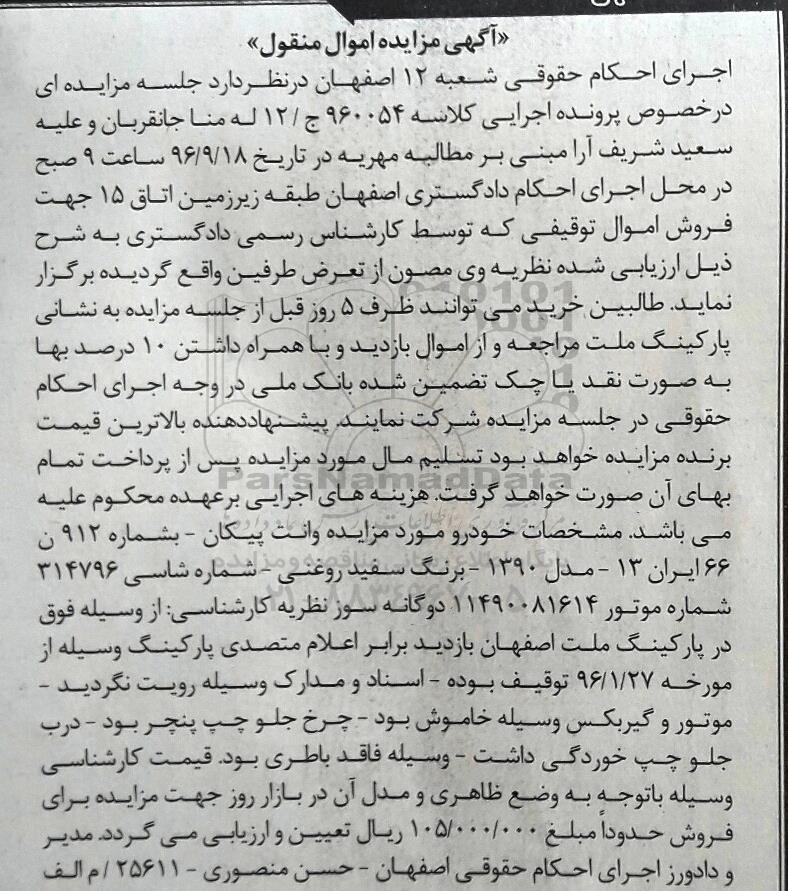 «آگهی مزایده اموال منقول»
اجرای احکام حقوقی شعبه ۱۲ اصفهان درنظردارد جلسه مزایده ای
درخصوص پرونده اجرایی کلاسه ۹۶۰۰۵۴ ج / ۱۲ له منا جانقربان و علیه
سعید شریف آرا مبنی بر مطالبه مهریه در تاریخ ۹۶/۹/۱۸ ساعت ۹ صبح
در محل اجرای احکام دادگستری اصفهان طبقه زیرزمین اتاق ۱۵ جهت
فروش اموال توقیفی که توسط کارشناس رسمی دادگستری به شرح
ذیل ارزیابی شده نظریه وی مصون از تعرض طرفین واقع گردیده برگزار
نماید. طالبین خرید می توانند ظرف ۵ روز قبل از جلسه مزایده به نشانی
پارکینگ ملت مراجعه و از اموال بازدید و با همراه داشتن ۱۰ درصد بها
به صورت نقد یا چک تضمین شده بانک ملی در وجه اجرای احکام
حقوقی در جلسه مزایده شرکت نمایند. پیشنهاددهنده بالاترین قیمت
برنده مزایده خواهد بود تسلیم مال مورد مزایده پس از پرداخت تمام
بهای آن صورت خواهد گرفت. هزینه های اجرایی برعهده محکوم علیه
می باشد. مشخصات خودرو مورد مزایده وانت پیکان - بشماره ۹۱۲ ن
۶۶ ایران ۱۳ - مدل ۱۳۹۰ - برنگ سفید روغنی - شماره شاسی ۳۱۴۷۹۶
شماره موتور ۱۱۴۹۰۰۸۱۶۱۴ دوگانه سوز نظریه کارشناسی: از وسیله فوق
در پارکینگ ملت اصفهان بازدید برابر اعلام متصدی پارکینگ وسیله از
مورخه ۹۶/۱/۲۷ توقیف بوده - اسناد و مدارک وسیله رویت نگردید -
موتور و گیربکس وسیله خاموش بود - چرخ جلو چپ پنچر بود - درب
جلو چپ خوردگی داشت - وسیله فاقد باطری بود. قیمت کارشناسی
وسیله باتوجه به وضع ظاهری و مدل آن در بازار روز جهت مزایده برای
فروش حدوداً مبلغ ۱۰۵/۰۰۰/۰۰۰ ریال تعیین و ارزیابی می گردد. مدیر
و دادورز اجرای احکام حقوقی اصفهان - حسن منصوری - ۲۵۶۱۱ / م الف
ParsNamadData